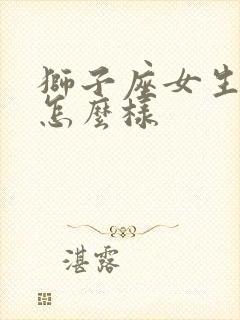 獅子座女生
怎麼樣
湛露